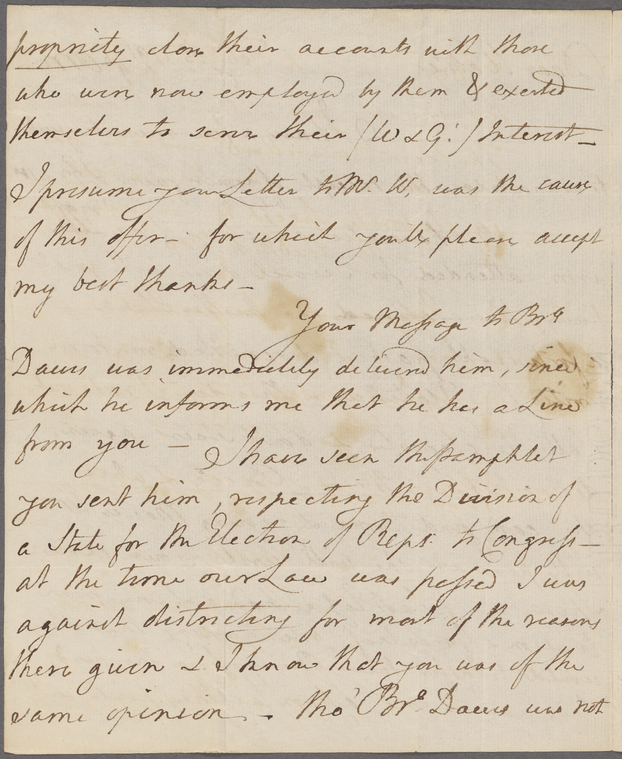 propriety close their accounts with those
who were now employed by them & exerted
themselves to serve their (W & G's) Interest –
I presume your Letter to Mr. W. was the cause
of this offer – for which you'll please accept
my best thanks –
Your Message to Bror
Dawes was immediately deliverd him, since
which he informs me that he has a Line
from you – I have seen the Pamphlet
you sent him, respecting the Division of
a State for the Election of Reps. to Congress –
at the time our Law was passed I was
against districting for most of the reasons
there given & I know that you was of the
same opinion –. tho' Bror Dawes was not